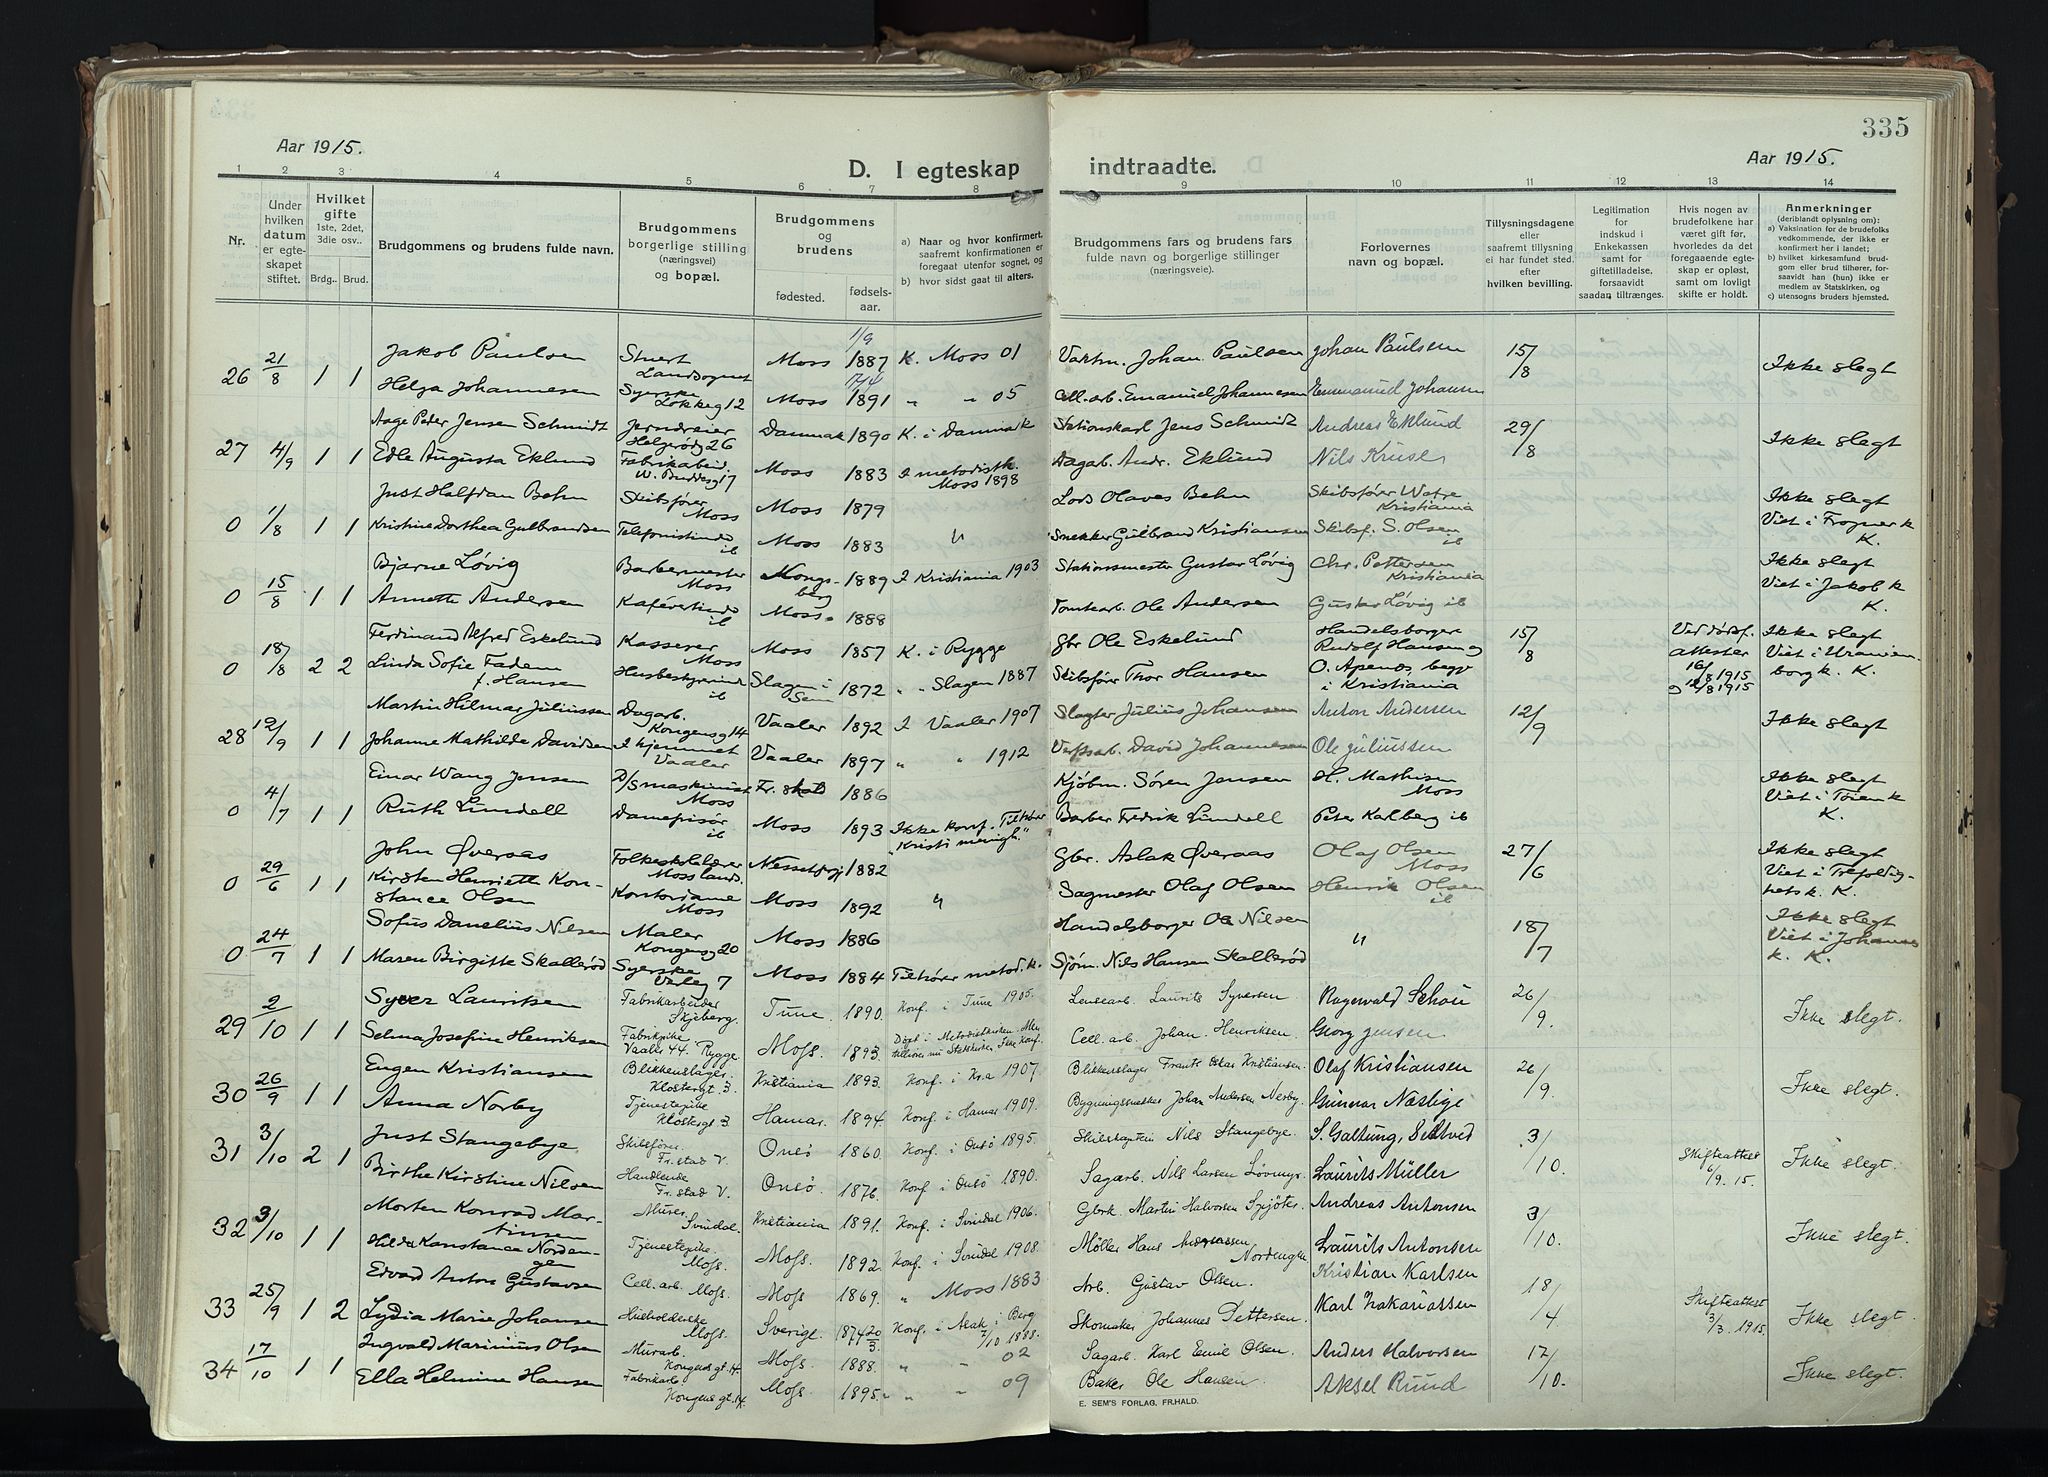 335
Aar 1915.
D. I egteskap indtraadte.
Aar 1915.
1 2 3 4 5 6 7 8 9 10 11 12 13 14
Nr.
Under hvilken datum er egteskapet stiftet.
Hvilket gifte 1ste, 2det, 3die osv.. Brdg.. Brud.
Brudgommens og brudens fulde navn.
Brudgommens borgerlige stilling (næringsvei) og bopæl.
Brudgommens og brudens fødested. fødselsaar.
a) Naar og hvor konfirmert, saafremt konfirmationen er foregaaet utenfor sognet, og
b) hvor sidst gaat til alters.
Brudgommens fars og brudens fars fulde navn og borgerlige stillinger (næringsveie).
Forlovernes navn og bopæl.
Tillysningsdagene eller saafremt tillysning ei har fundet sted. efter hvilken bevilling.
Legitimation for indskud i Enkekassen samt for giftetilladelse, forsaavidt saadan tiltrænges.
Hvis nogen av brudefolkene har været gift før, hvorledes da det foregaaende egteskap er opløst, samt om lovligt skifte er holdt.
Anmerkninger (deriblandt oplysning om): a) Vaksination for de brudefolks vedkommende, der ikke er konfirmert her i landet; b) hvilket kirkesamfund brudgom eller brud tilhører, forsaavidt han (hun) ikke er medlem av Statskirken, og c) utensogns bruders hjemsted.
26 21/8 1 1 Jakob Paulsen Stuert Landsognet Moss 1/9 1887 K. Moss 01 Vaktm. Johan Paulsen Johan Paulsen 15/8 Ikke slegt
Helga Johannesen Syerske Løkkeg 12 Moss 17/4 1891 " " 05 Cell.arb. Emanuel Johannesen Emmanuel Johansen
27 4/9 1 1 Aage Peder Jensen Schmidt Jerndreier Helgerødg 26 Danmak 1890 K. i Danmark Stationskarl Jens Schmidt Andreas Eklund 29/8 Ikke slegt
Edle Augusta Eklund Fabrikabeid. W. Buddesg 17 Moss 1883 I metodistk. Moss 1898 Dagarb. Andr. Eklund Nils Kruse
0 1/8 1 1 Just Halfdan Behn Skibsfører Moss Moss 1879 Lods Olaves Behn Skibsfører Kristiania Ikke slegt Viet i Frogner k K.
Kristine Dorthea Gulbrandsen Telefonistinde ib Moss 1883 " Snekker Gulbrand Kristiansen Skibsf. S. Olsen ib
0 15/8 1 1 Bjarne Løvig Barbermester Moss Kongsberg 1889 I Kristiania 1903 Stationsmester Gustav Løvig Chr. Pettersen Kristiania Ikke slegt Viet i Jakob k K.
Annette Andersen Kafévertinde ib Moss 1888 Tomtearb. Ole Andersen Gustav Løvig ib
0 18/8 2 2 Ferdinand Alfred Eskelund Kasserer Moss Moss 1857 K. i Rygge Gbr Ole Eskelund Handelsborgere Rudolf Hansen og 15/8 Ved dødsf. attester 16/8 1915 Ikke slegt Viet i Uranienborg k. K.
Linda Sofie Fadem f. Hansen Husbestyrerinde ib Slagen i Sem 1872 " Slagen 1887 Skibsfører Thor Hansen O. Apenæs, begge i Kristiania
28 12/9 1 1 Martin Hilmar Juliussen Dagarb. Kongensg 14 Vaaler 1892 I Vaaler 1907 Slagter Julius Johansen Anton Andersen 12/9 Ikke slegt
Johanne Mathilde Davidsen I hjemmet Vaaler Vaaler 1897 " " 1912 Verftsarb. David Johannesen Ole Juliussen
0 4/7 1 1 Einar Wang Jensen D/Smaskinist Moss Fr. stad 1886 Kjøbm. Søren Jensen H. Mathisen Moss Ikke slegt Viet i Tøien k K.
Ruth Lundell Damefrisør ib Moss 1893 Ikke konf. Tilhører "Kristi menigh." Barber Fredrik Lundell Peter Karlberg ib
0 29/6 1 1 John Øveraas Folkeskolelærer Moss lands. 1882 Gbr. Aslak Øveraas Olaf Olsen Moss 27/6 Ikke slegt Viet i Trefoldighets k. K.
Kirsten Henriette Konstance Olsen Kontordame Moss Moss 1892 " Sagmester Olaf Olsen Henrik Olsen ib
0 24/7 1 1 Sofus Danelius Nilsen Maler Kongensg 20 Moss 1886 Handelsborger Ole Nilsen " 18/7 Ikke slegt Viet i Johannes k. K.
Maren Birgitte Skallerød Syerske Valeg 7 Moss 1884 Tilhører metod. k. Sjøm. Nils Hansen Skallerød
29 2/10 1 1 Syver Lauritsen Fabrikarbeider Skjeberg. Tune 1890. Konf. i Tune 1905. Lensearb. Laurits Syversen. Ragnvald Schou 26/9. Ikke slegt.
Selma Josefine Henriksen Fabrikpike Vaaler 44. Rygge. Moss. 1893. Døpt i Metodistkirken. Men tilhører nu Statskirken. Ikke konf. Cell. arb. Johan Henriksen. Georg Jensen
30 26/9 1 1 Eugen Kristiansen Blikkenslager. Klostergt. 3. Kristiania 1893. Konf. i Kr.a 1907. Blikkenslager Frants Oskar Kristiansen. Olaf Kristiansen 26/9. Ikke slegt.
Anna Norby Tjenestepike Klostergt 3. Hamar. 1894. Konf. i Hamar 1909. Bygningssnekker Johan Andersen Norby. Gunnar Næslige
31 3/10 2 1 Just Stangebye Skibsfører. Fr.stad V. Onsø 1860. Konf. i Onsø 1895. Skibskaptein Nils Stangebye. S. Galtung, 3/10. Skifteattest 6/9. 15. Ikke slegt.
Birthe Kirstine Nilsen Handlende Fr.stad V. Onsø. 1876. Konf. i Onsø 1890. Sagarb. Nils Larsen Løvmyr. Laurits Müller
32 3/10 1 1 Morten Konrad Martinsen Murer Svindal. Kristiania 1891. Konf. i Svindal 1906. Gbrk. Martin Halvorsen Andreas Antonsen 3/10. Ikke slegt.
Hilda Konstance Nordengen Tjenestepike. Moss. Moss. 1892. Konf. i Svindal 1908. Møller Hans Nordengen Laurits Antonsen
33 25/9 1 2 Edvard Anton Gustavsen Cell. arb. Moss. Moss. 1869. " Moss 1883 Arb. Gustav Olsen. Kristian Karlsen 18/4 Skifteattest 3/3. 1915. Ikke slegt.
Lydia Marie Johansen Husholderske Moss. Sverige 1874 20/3. Konf. i Asak i Berg 7/10 1888. Skomaker Johannes Pettersen. Karl Zakariassen
34 17/10 1 1 Ingvald Marinius Olsen Murarb. Kongens gt. 14. Moss. 1888. " " 02 Sagarb. Karl Emil Olsen. Anders Halvorsen 17/10. Ikke slegt.
Ella Helmine Hansen Fabrikarb. Kongens gt. 14. Moss. 1895. " " 09 Baker Ole Hansen. Aksel Rund
E. SEM'S FORLAG, FR.HALD.